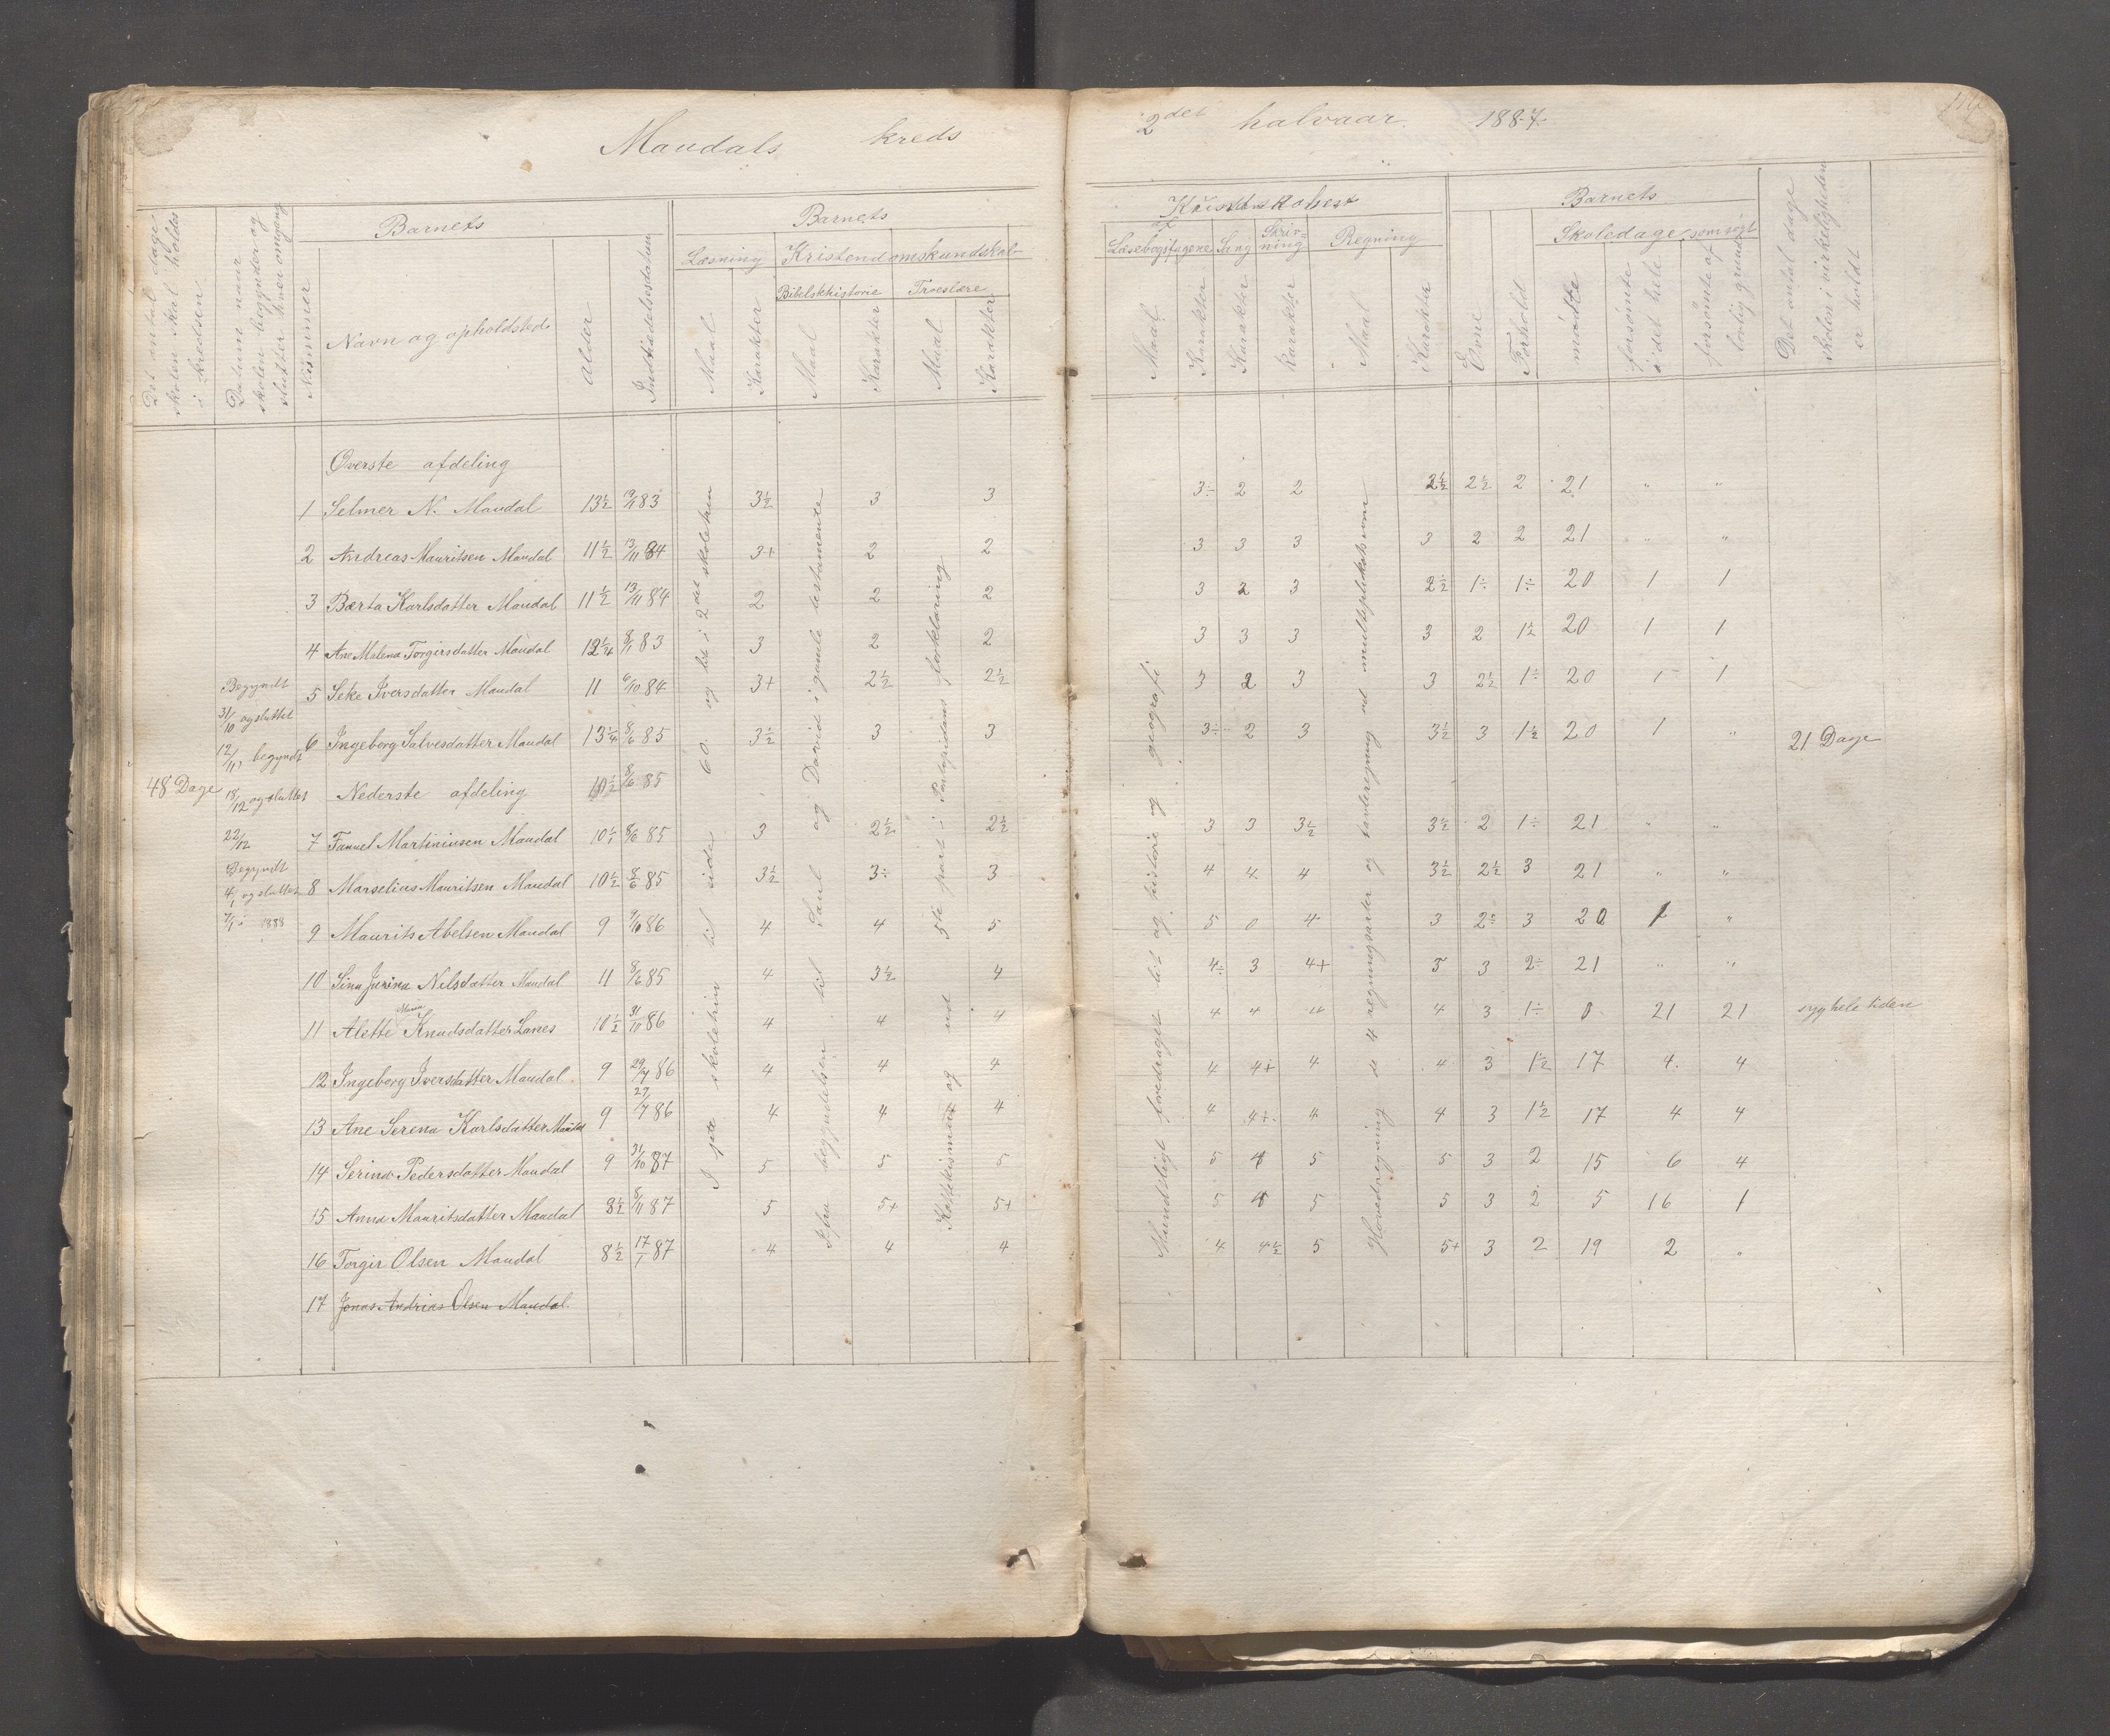 Maudals kreds
2det halvaar 1887.
Det antal dage skolen skal holdes i kredsen
Datum naar skolen begynder og slutter hver omgang
Nummer
Barnets
Navn og opholdsted
Alder
Indtrædelsesdatum
Barnets
Læsning
Maal
Karakter
Kristendomskundskab
Bibelskhistorie
Maal
Karakter
Troeslære
Maal
Karakter
Læsebogsfagene
Maal
Karakter
Sang
Karakter
Skrivning
Karakter
Regning
Maal
Karakter
Barnets
Evne
Forhold
Skoledage
mødte
forsømte i det hele
forsømte af lovlig grund
Det antal dage skolen i virkeligheden er holdt
Øverste afdeling
1 Selmer N. Maudal 13½ 19/11 83 3½ 3 3 3÷ 2 2 2½ 2½ 2 21 " "
2 Andreas Mauritsen Maudal 11½ 13/11 84 3+ 2 2 3 3 3 3 2 2 21 " "
3 Bærta Karlsdatter Maudal 11½ 13/11 84 2 2 2 3 2 3 2½ 1÷ 1÷ 20 1 1
4 Ane Malena Torgirsdatter Maudal 12¼ 8/1 83 3 2 2 3 3 3 3 2 1½ 20 1 1
5 Seke Iversdatter Maudal 11 6/10 84 3+ 2½ 2½ 3 2 3 3 2½ 1÷ 20 1 1
6 Ingeborg Salvesdatter Maudal 13¼ 8/6 85 3½ 3 3 3÷ 2 3 3½ 3 1½ 20 1 "
Nederste afdeling 10½ 8/6 85
7 Fanuel Martiniusen Maudal 10½ 8/6 85 3 2½ 2½ 3 3 3½ 3½ 2 1÷ 21 " "
8 Marselius Mauritsen Maudal 10½ 8/6 85 3½ 3÷ 3 4 4 4 3½ 2½ 3 21 " "
9 Maurits Abelsen Maudal 9 9/10 86 4 4 5 5 0 4 3 2÷ 3 20 1 "
10 Sina Jurina Nilsdatter Maudal 11 8/6 85 4 3½ 4 4÷ 3 4+ 5 3 2÷ 21 " "
11 Alette Maria Knudsdatter Lanes 10½ 31/10 86 4 4 4 4 4 4 4 3 1÷ 0 21 21 syg hele tiden
12 Ingeborg Iversdatter Maudal 9 29/7 86 4 4 4 4 4+ 4 4 3 1½ 17 4 4
13 Ane Serena Karlsdatter Maudal 9 29/7 86 4 4 4 4 4+ 4 4 3 1½ 17 4 4
14 Serina Pedersdatter Maudal 9 31/10 87 5 5 5 5 4 5 5 3 2 15 6 4
15 Anna Mauritsdatter Maudal 8½ 8/11 87 5 5+ 5+ 5 4 5 5 3 2 5 16 1
16 Torgir Olsen Maudal 8½ 17/1 87 4 4 4 4 4½ 5 5+ 3 2 19 2 "
17 Jonas Andrias Olsen Maudal
48 Dage
Begyndt
31/10 og sluttet
12/11, begyndt
18/12 og sluttet
22/12
Begyndt
4/1 og sluttet
7/1 1888
21 Dage
I 1ste skoletrin til side 60 og lit i 2det skoletrin
Fra begyndelsen til Saul og David i gamle testamente
Katekismus og ud 5te part i Pontopidans forklaring
Mundtligt foredraget lit af historie og geografi
Hovedregning de 4 regningsarter og tavleregning ud multiplikationen